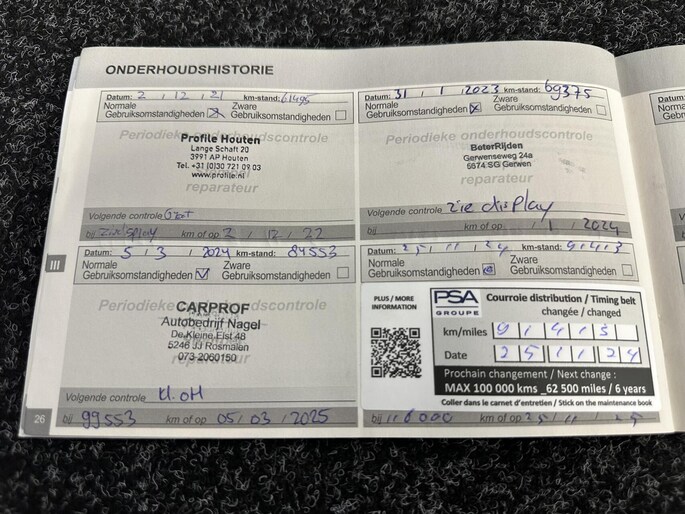 ONDERHOUDSHISTORIE
Datum: 2 / 12 / 21 km-stand: 61495
Normale Gebruiksomstandigheden
Zware Gebruiksomstandigheden
Periodieke onderhoudscontrole
Profile Houten
Lange Schaft 20
3991 AP Houten
Tel. +31 (0)30 721 09 03
www.profile.nl
reparateur
Volgende controle
bij km of op 2 / 12 / 22
Datum: 31 / 1 / 2023 km-stand: 69375
Normale Gebruiksomstandigheden
Zware Gebruiksomstandigheden
Periodieke onderhoudscontrole
BeterRijden
Gerwenseweg 24a
5674 SG Gerwen
reparateur
Volgende controle zie display
bij km of op / 1 / 2024
III
Datum: 5 / 3 / 2024 km-stand: 84553
Normale Gebruiksomstandigheden
Zware Gebruiksomstandigheden
Periodieke onderhoudscontrole
CARPROF
Autobedrijf Nagel
De Kleine Elst 48
5246 JJ Rosmalen
073-2060150
Volgende controle kl. OH
bij 99553 km of op 05 / 03 / 2025
Datum: 25 / 11 / 24 km-stand:
Normale Gebruiksomstandigheden
Zware Gebruiksomstandigheden
PLUS / MORE
INFORMATION
PSA
GROUPE
Courroie distribution / Timing belt
changée / changed
km/miles
Date 25 11 24
Prochain changement / Next change :
MAX 100 000 kms _62 500 miles / 6 years
Coller dans le carnet d'entretien / Stick on the maintenance book
bij km of op
26
Datum
Norma
Gebru
Volge
bij
Datum
Norma
Gebru